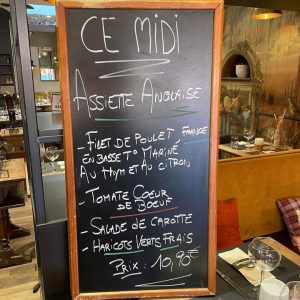 CE MiDi
ASSIETTE ANGLAISE
- FILET DE POULET, FRANCE
EN BASSE T° MARINÉ
AU THYM ET AU CITRON
- TOMATE COEUR
DE BOEUF
- SALADE DE CAROTTE
- HARICOTS VERTS FRAIS
PRIX : 10,90€